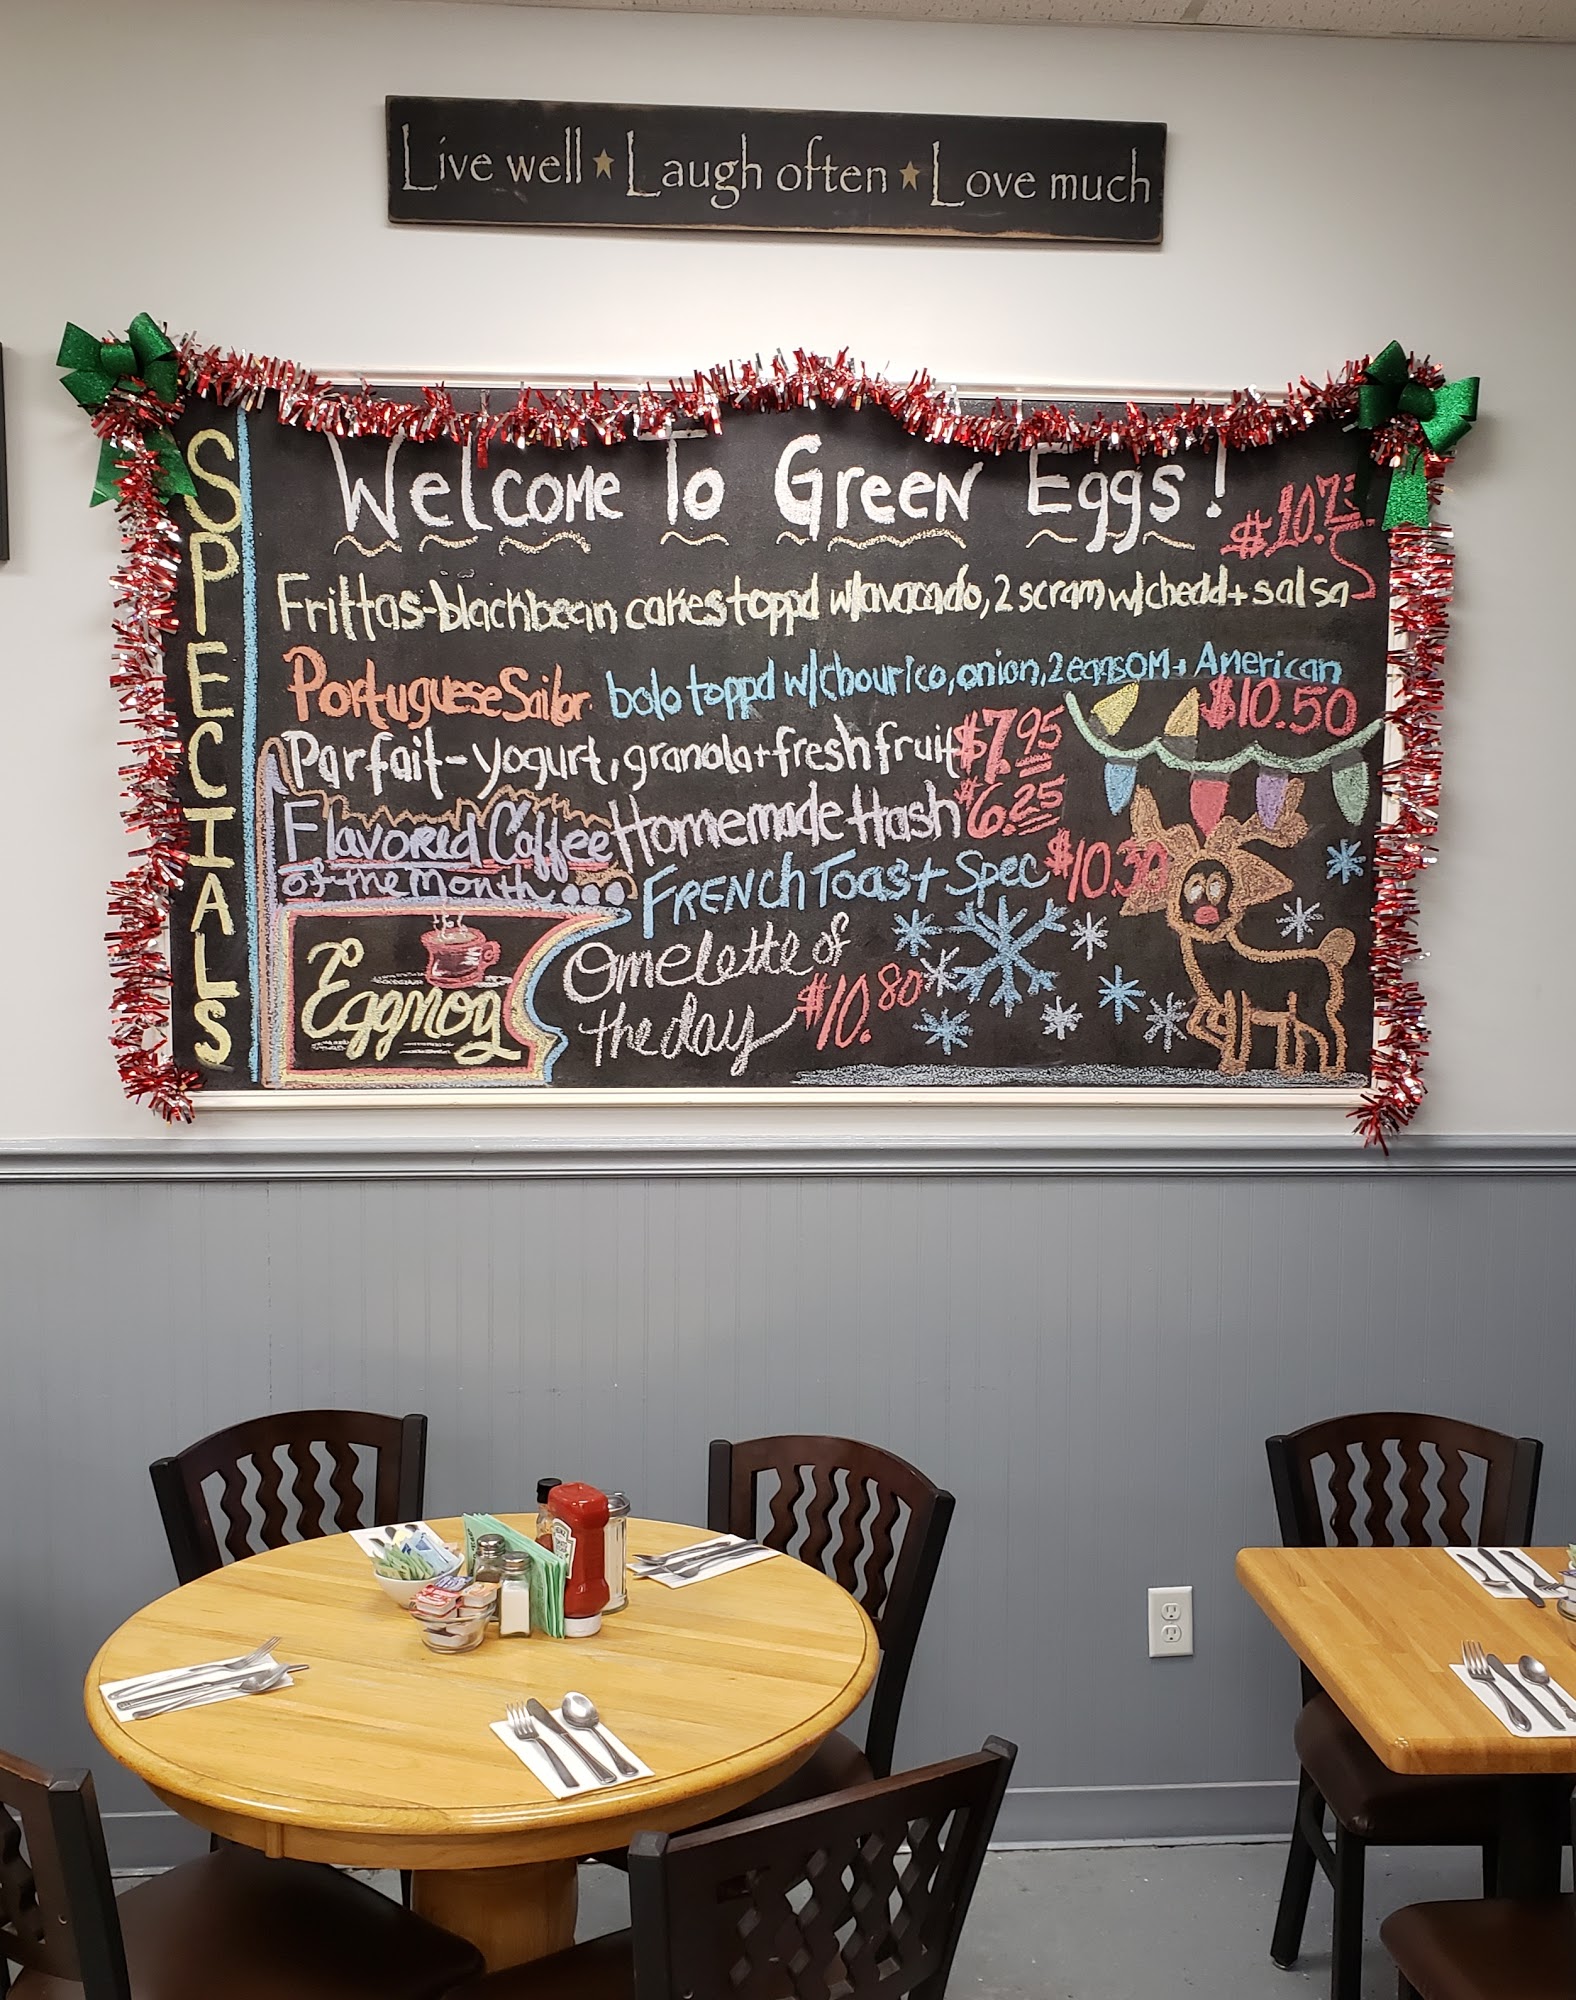 Live well ★ Laugh often ★ Love much
SPECIALS
Welcome To Green Eggs!
$10.75
Frittas-blackbean cakes toppd w/avacado, 2 scram w/chedd + salsa
Portuguese Sailor: bolo toppd w/chourico, onion, 2 eggs OM + American
$10.50
Parfait-yogurt, granola + fresh fruit $7.95
Flavored Coffee
of the Month...
Eggnog
Homemade Hash $6.25
French Toast Spec $10.30
Omelette of
the day $10.80
HEINZ